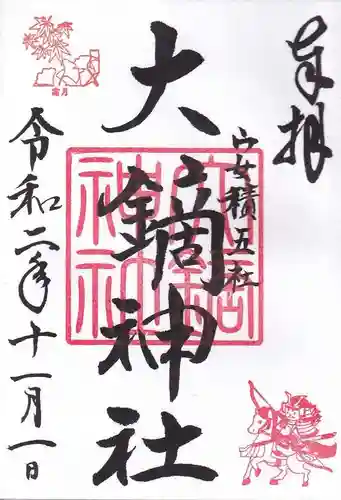 奉拝
安積五社
大鏑神社
令和二年十一月一日
霜月